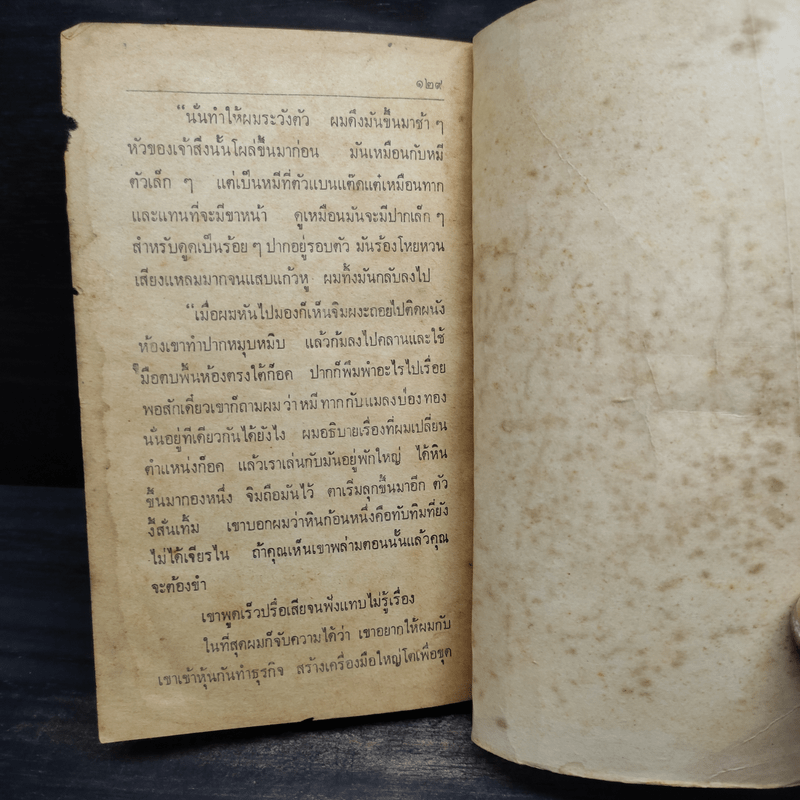 ๑๒๙
“นั่นทำให้ผมระวังตัว ผมดึงมันขึ้นมาช้า ๆ
หัวของเจ้าสิ่งนั้นโผล่ขึ้นมาก่อน มันเหมือนกับหมี
ตัวเล็ก ๆ แต่เป็นหมีที่ตัวแบนแต๊ดแต๋เหมือนทาก
และแทนที่จะมีขาหน้า ดูเหมือนมันจะมีปากเล็ก ๆ
สำหรับดูดเป็นร้อย ๆ ปากอยู่รอบตัว มันร้องโหยหวน
เสียงแหลมมากจนแสบแก้วหู ผมทิ้งมันกลับลงไป
“เมื่อผมหันไปมองก็เห็นจิมผงะถอยไปติดผนัง
ห้องเขาทำปากหมุบหมิบ แล้วก้มลงไปคลานและใช้
มือตบพื้นห้องตรงใต้ก็อค ปากก็พึมพำอะไรไปเรื่อย
พอสักเดี๋ยวเขาก็ถามผม ว่า หมี ทาก กับ แมลงป่อง ทอง
นั่นอยู่ที่เดียวกันได้ยังไง ผมอธิบายเรื่องที่ผมเปลี่ยน
ตำแหน่งก็อค แล้วเราเล่นกับมันอยู่พักใหญ่ ได้หิน
ขึ้นมากองหนึ่ง จิมถือมันไว้ ตาเริ่มลุกขึ้นมาอีก ตัว
งี้สั่นเทิ้ม เขาบอกผมว่าหินก้อนหนึ่งคือทับทิมที่ยัง
ไม่ได้เจียรไน ถ้าคุณเห็นเขาพล่ามตอนนั้นแล้วคุณ
จะต้องขำ
เขาพูดเร็วปรื๋อเสียจนฟังแทบไม่รู้เรื่อง
ในที่สุดผมก็จับความได้ว่า เขาอยากให้ผมกับ
เขาเข้าหุ้นกันทำธุรกิจ สร้างเครื่องมือใหญ่โตเพื่อขุด